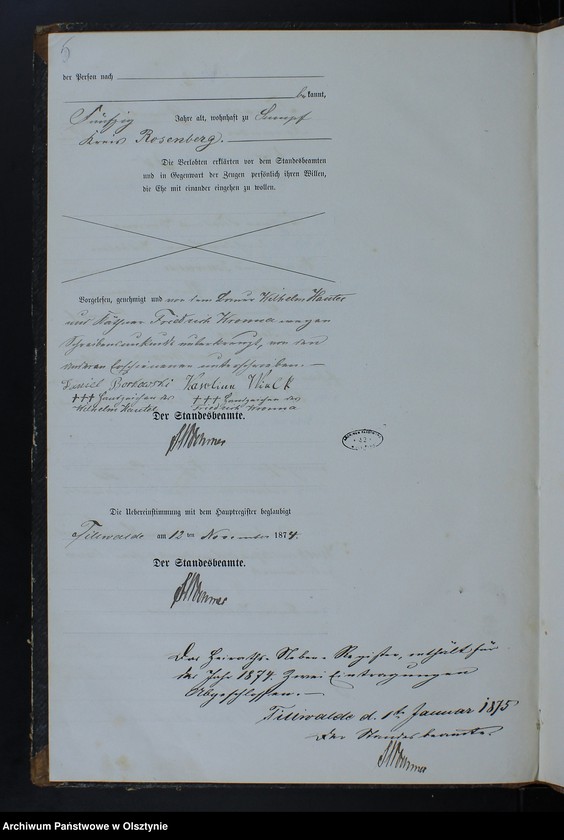 6
der Person nach
bekannt,
Fünfzig Jahre alt, wohnhaft zu Sumpf
Kreis Rosenberg.
Die Verlobten erklärten vor dem Standesbeamten
und in Gegenwart der Zeugen persönlich ihren Willen,
die Ehe mit einander eingehen zu wollen.
Vorgelesen, genehmigt und von dem Wilhelm
und Käthner Friedrich wegen
Schreibensunkunde unterkreuzt, von den
anderen Erschienenen unterschrieben.—
Daniel Borkowski Karoline
+++ Handzeichen des +++ Handzeichen des
Wilhelm Friedrich
Der Standesbeamte.
Die Uebereinstimmung mit dem Hauptregister beglaubigt
Tillwalde am 12 ten November 1874.
Der Standesbeamte.
Das Heiraths-Neben-Register, enthält für
das Jahr 1874 zwei Eintragungen
Abgeschlossen.—
Tillwalde d. 1t. Januar 1875
Der Standesbeamte
Archiwum Państwowe w Olsztynie